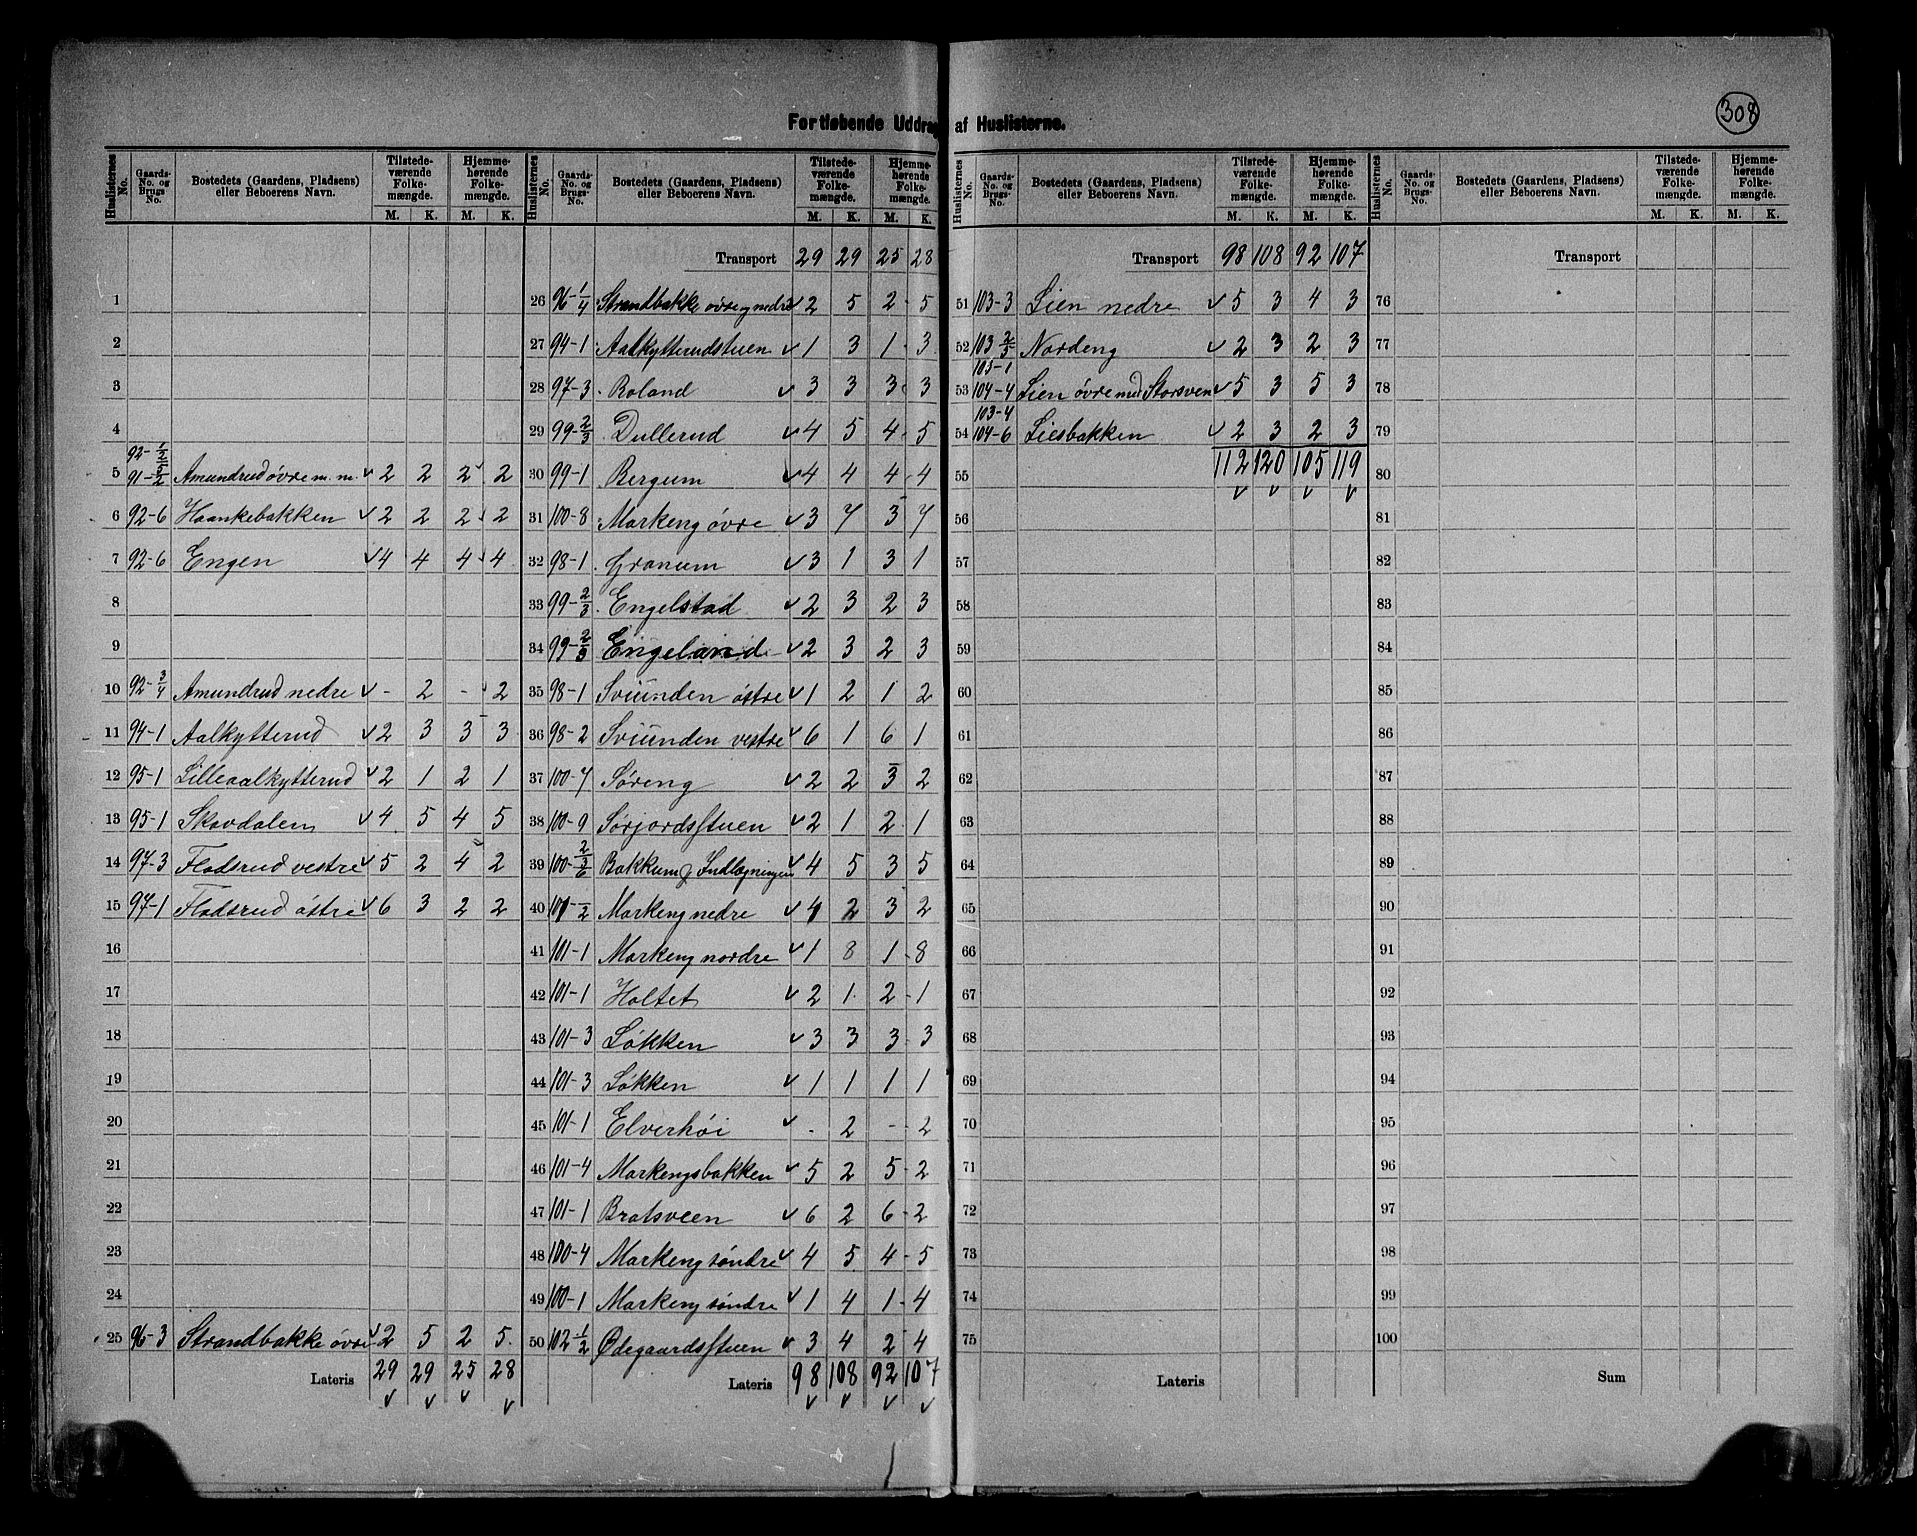 308
Fortløbende Uddrag af Huslisterne.
Huslisternes No. | Gaards-No. og Brugs No. | Bostedets (Gaardens, Pladsens) eller Beboerens Navn. | Tilstede-værende Folke-mængde. M. K. | Hjemme-hørende Folke-mængde. M. K.
1
2
3
4
5 92-1/2 91-1/2 Amundrud øvre m. m. 2 2 2 2
6 92-6 Haankebakken 2 2 2 2
7 92-6 Engen 4 4 4 4
8
9
10 92-3/4 Amundrud nedre - 2 - 2
11 94-1 Aalkytterud 2 3 3 3
12 95-1 Lilleaalkytterud 2 1 2 1
13 95-1 Skavdalen 4 5 4 5
14 97-3 Flodsrud vestre 5 2 4 2
15 97-1 Flodsrud østre 6 3 2 2
16
17
18
19
20
21
22
23
24
25 96-3 Strandbakke øvre 2 5 2 5
Lateris 29 29 25 28
Huslisternes No. | Gaards-No. og Brugs-No. | Bostedets (Gaardens, Pladsens) eller Beboerens Navn. | Tilstede-værende Folke-mængde. M. K. | Hjemme-hørende Folke-mængde. M. K.
Transport 29 29 25 28
26 96-1/4 Strandbakke øvre og nedre 2 5 2 5
27 94-1 Aalkytterudstuen 1 3 1 3
28 97-3 Roland 3 3 3 3
29 99-2/3 Dullerud 4 5 4 5
30 99-1 Bergum 4 4 4 4
31 100-8 Markeng øvre 3 7 3 7
32 98-1 Granum 3 1 3 1
33 99-2/3 Engelstad 2 3 2 3
34 99-2/3 Engeland 2 3 2 3
35 98-1 Sviunden østre 1 2 1 2
36 98-2 Sviunden vestre 6 1 6 1
37 100-7 Søreng 2 2 3 2
38 100-9 Sørjordsstuen 2 1 2 1
39 100-2/3/6 Bakkum og Indlægningen 4 5 3 5
40 101-1/2 Markeng nedre 4 2 3 2
41 101-1 Markeng nordre 1 8 1 8
42 101-1 Holtet 2 1 2 1
43 101-3 Løkken 3 3 3 3
44 101-3 Løkken 1 1 1 1
45 101-1 Elverhøi - 2 - 2
46 101-4 Markengsbakken 5 2 5 2
47 101-1 Bratsveen 6 2 6 2
48 100-4 Markeng søndre 4 5 4 5
49 100-1 Markeng søndre 1 4 1 4
50 102-1/2 Ødegaardsstuen 3 4 2 4
Lateris 98 108 92 107
Huslisternes No. | Gaards-No. og Brugs-No. | Bostedets (Gaardens, Pladsens) eller Beboerens Navn. | Tilstede-værende Folke-mængde. M. K. | Hjemme-hørende Folke-mængde. M. K.
Transport 98 108 92 107
51 103-3 Lien nedre 5 3 4 3
52 103-2/5 Nordeng 2 3 2 3
53 103-1 104-4 Lien øvre med Storsveen 5 3 5 3
54 103-4 104-6 Liesbakken 2 3 2 3
55 112 120 105 119
56
57
58
59
60
61
62
63
64
65
66
67
68
69
70
71
72
73
74
75
Lateris
Huslisternes No. | Gaards-No. og Brugs-No. | Bostedets (Gaardens, Pladsens) eller Beboerens Navn. | Tilstede-værende Folke-mængde. M. K. | Hjemme-hørende Folke-mængde. M. K.
Transport
76
77
78
79
80
81
82
83
84
85
86
87
88
89
90
91
92
93
94
95
96
97
98
99
100
Sum